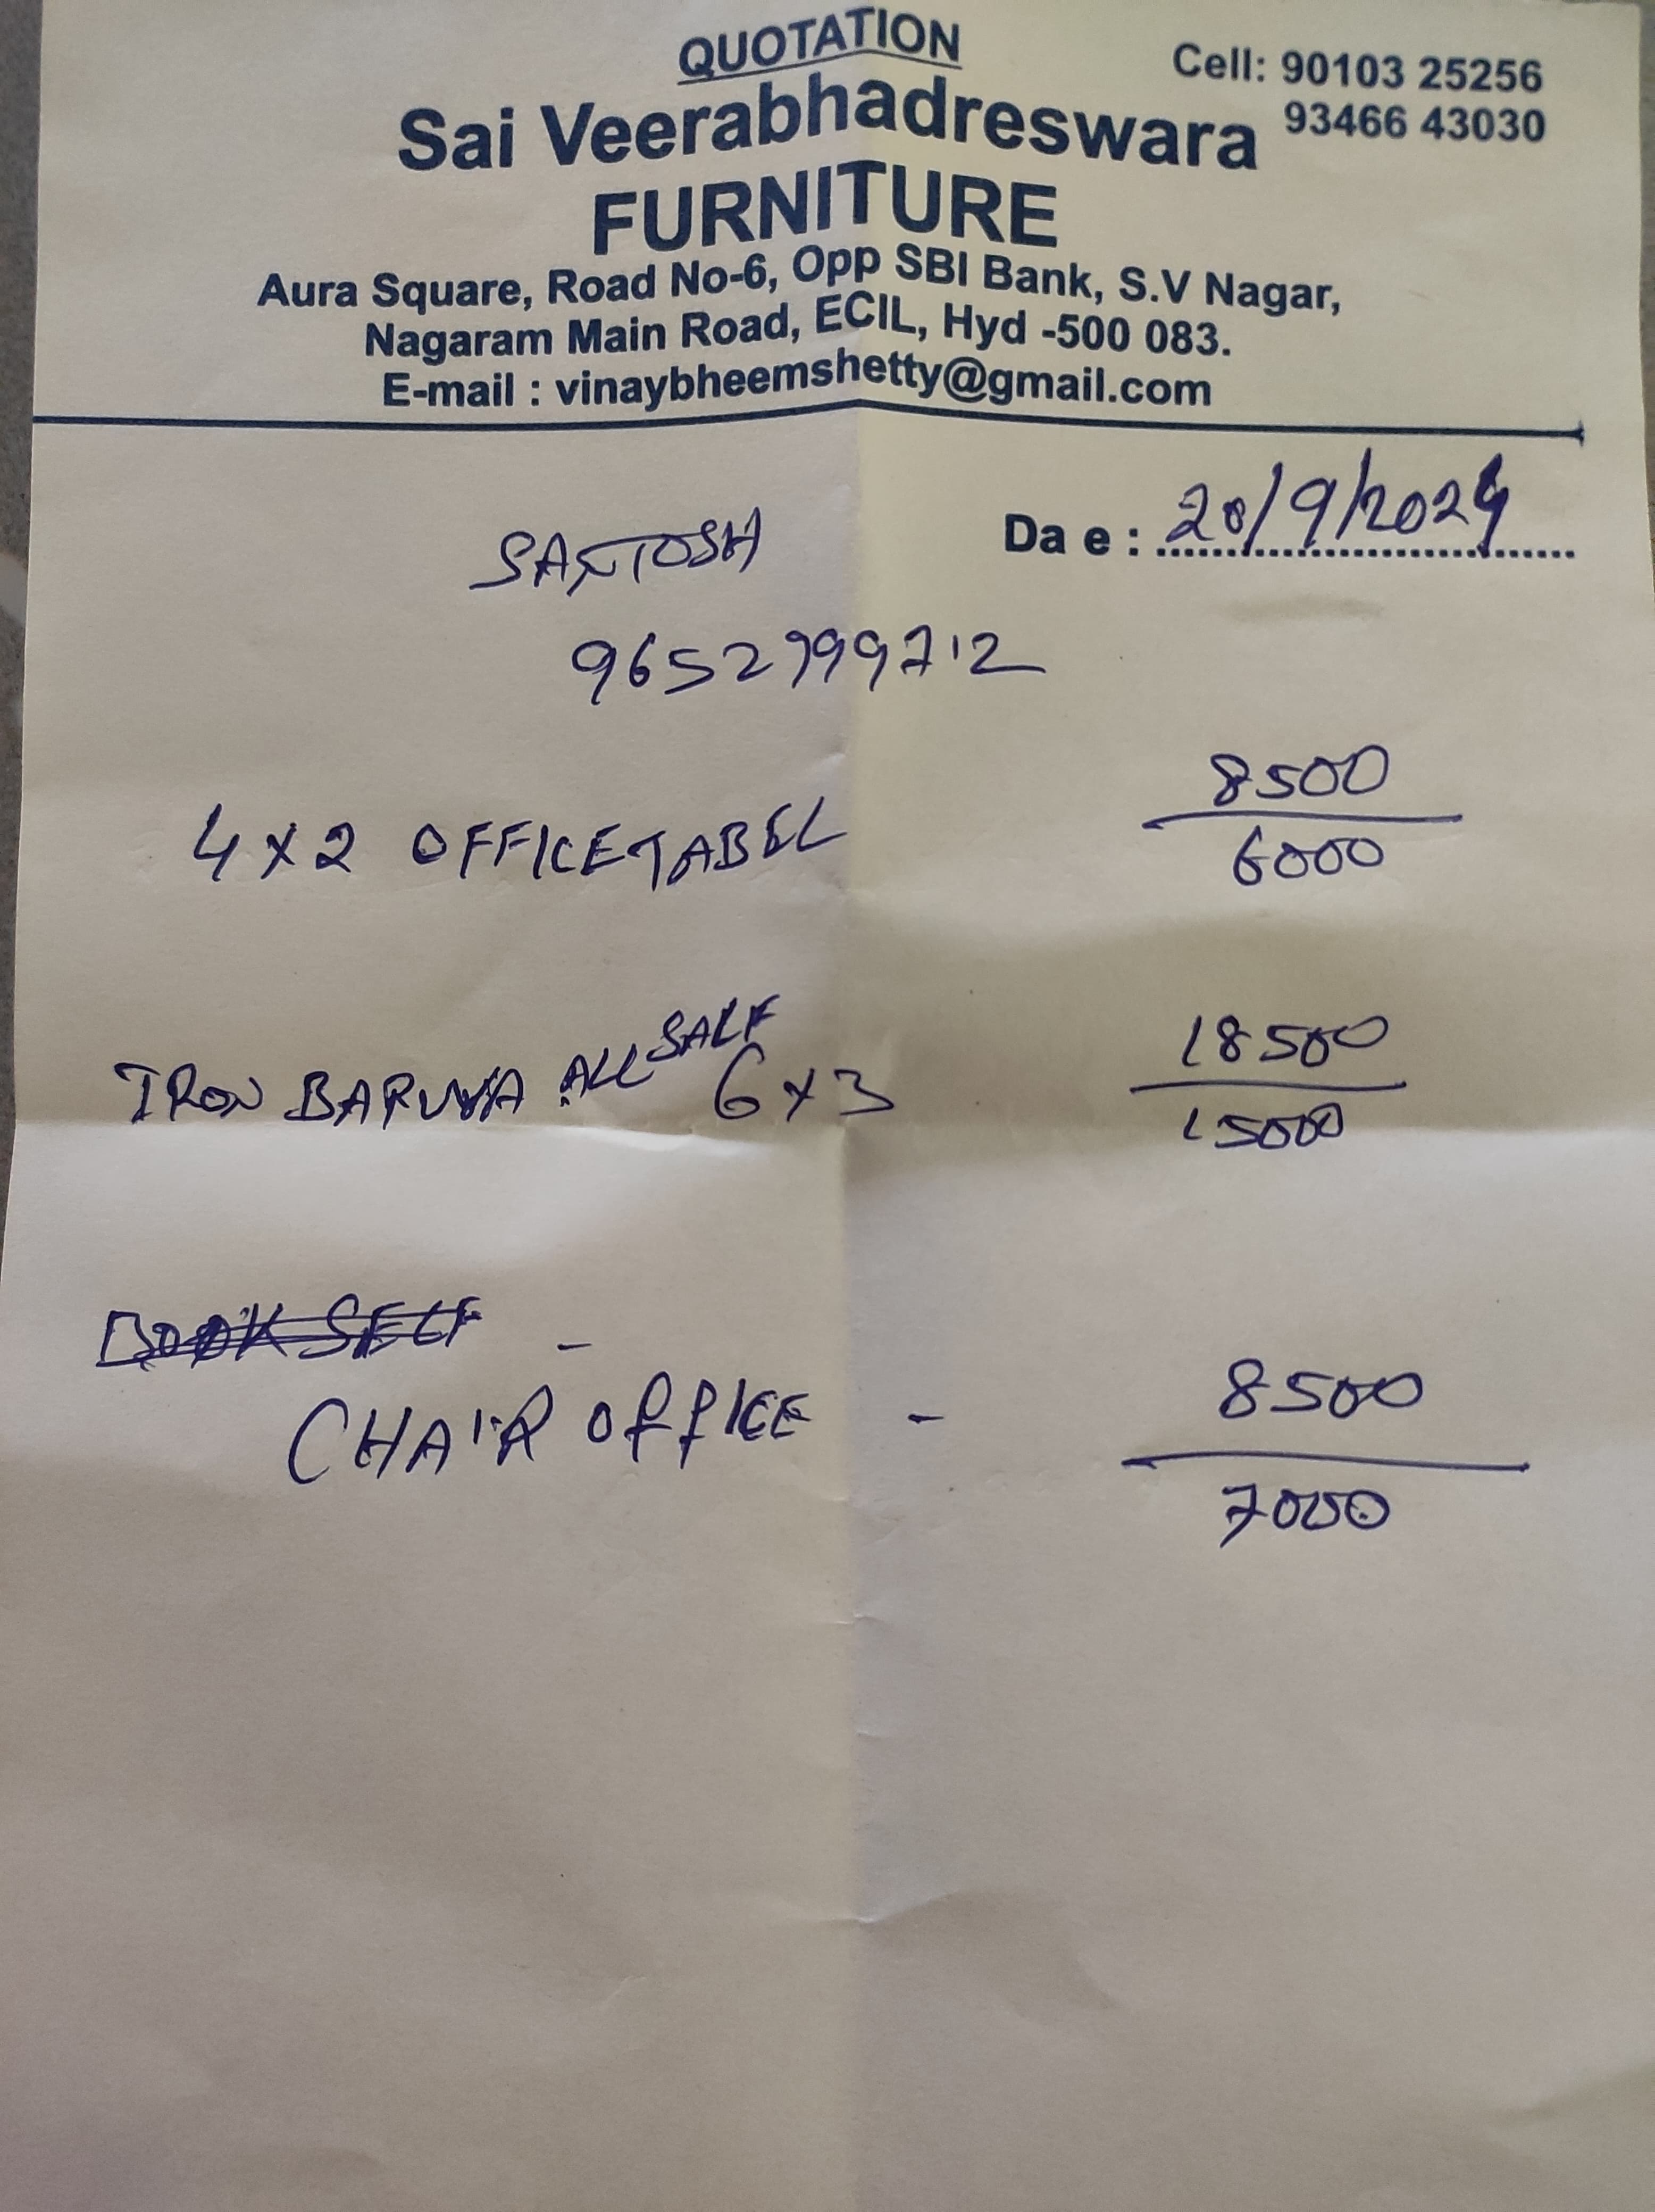 QUOTATION
Cell: 90103 25256
93466 43030
Sai Veerabhadreswara
FURNITURE
Aura Square, Road No-6, Opp SBI Bank, S.V Nagar,
Nagaram Main Road, ECIL, Hyd -500 083.
E-mail : vinaybheemshetty@gmail.com
Da e : 20/9/2024
SANTOSH
9652999712
8500
4 x 2 OFFICE TABEL
6000
SALF
IRON BARUVA ALL 6 x 3
18500
15000
BOOK SELF -
CHAIR OFFICE - 8500
7000